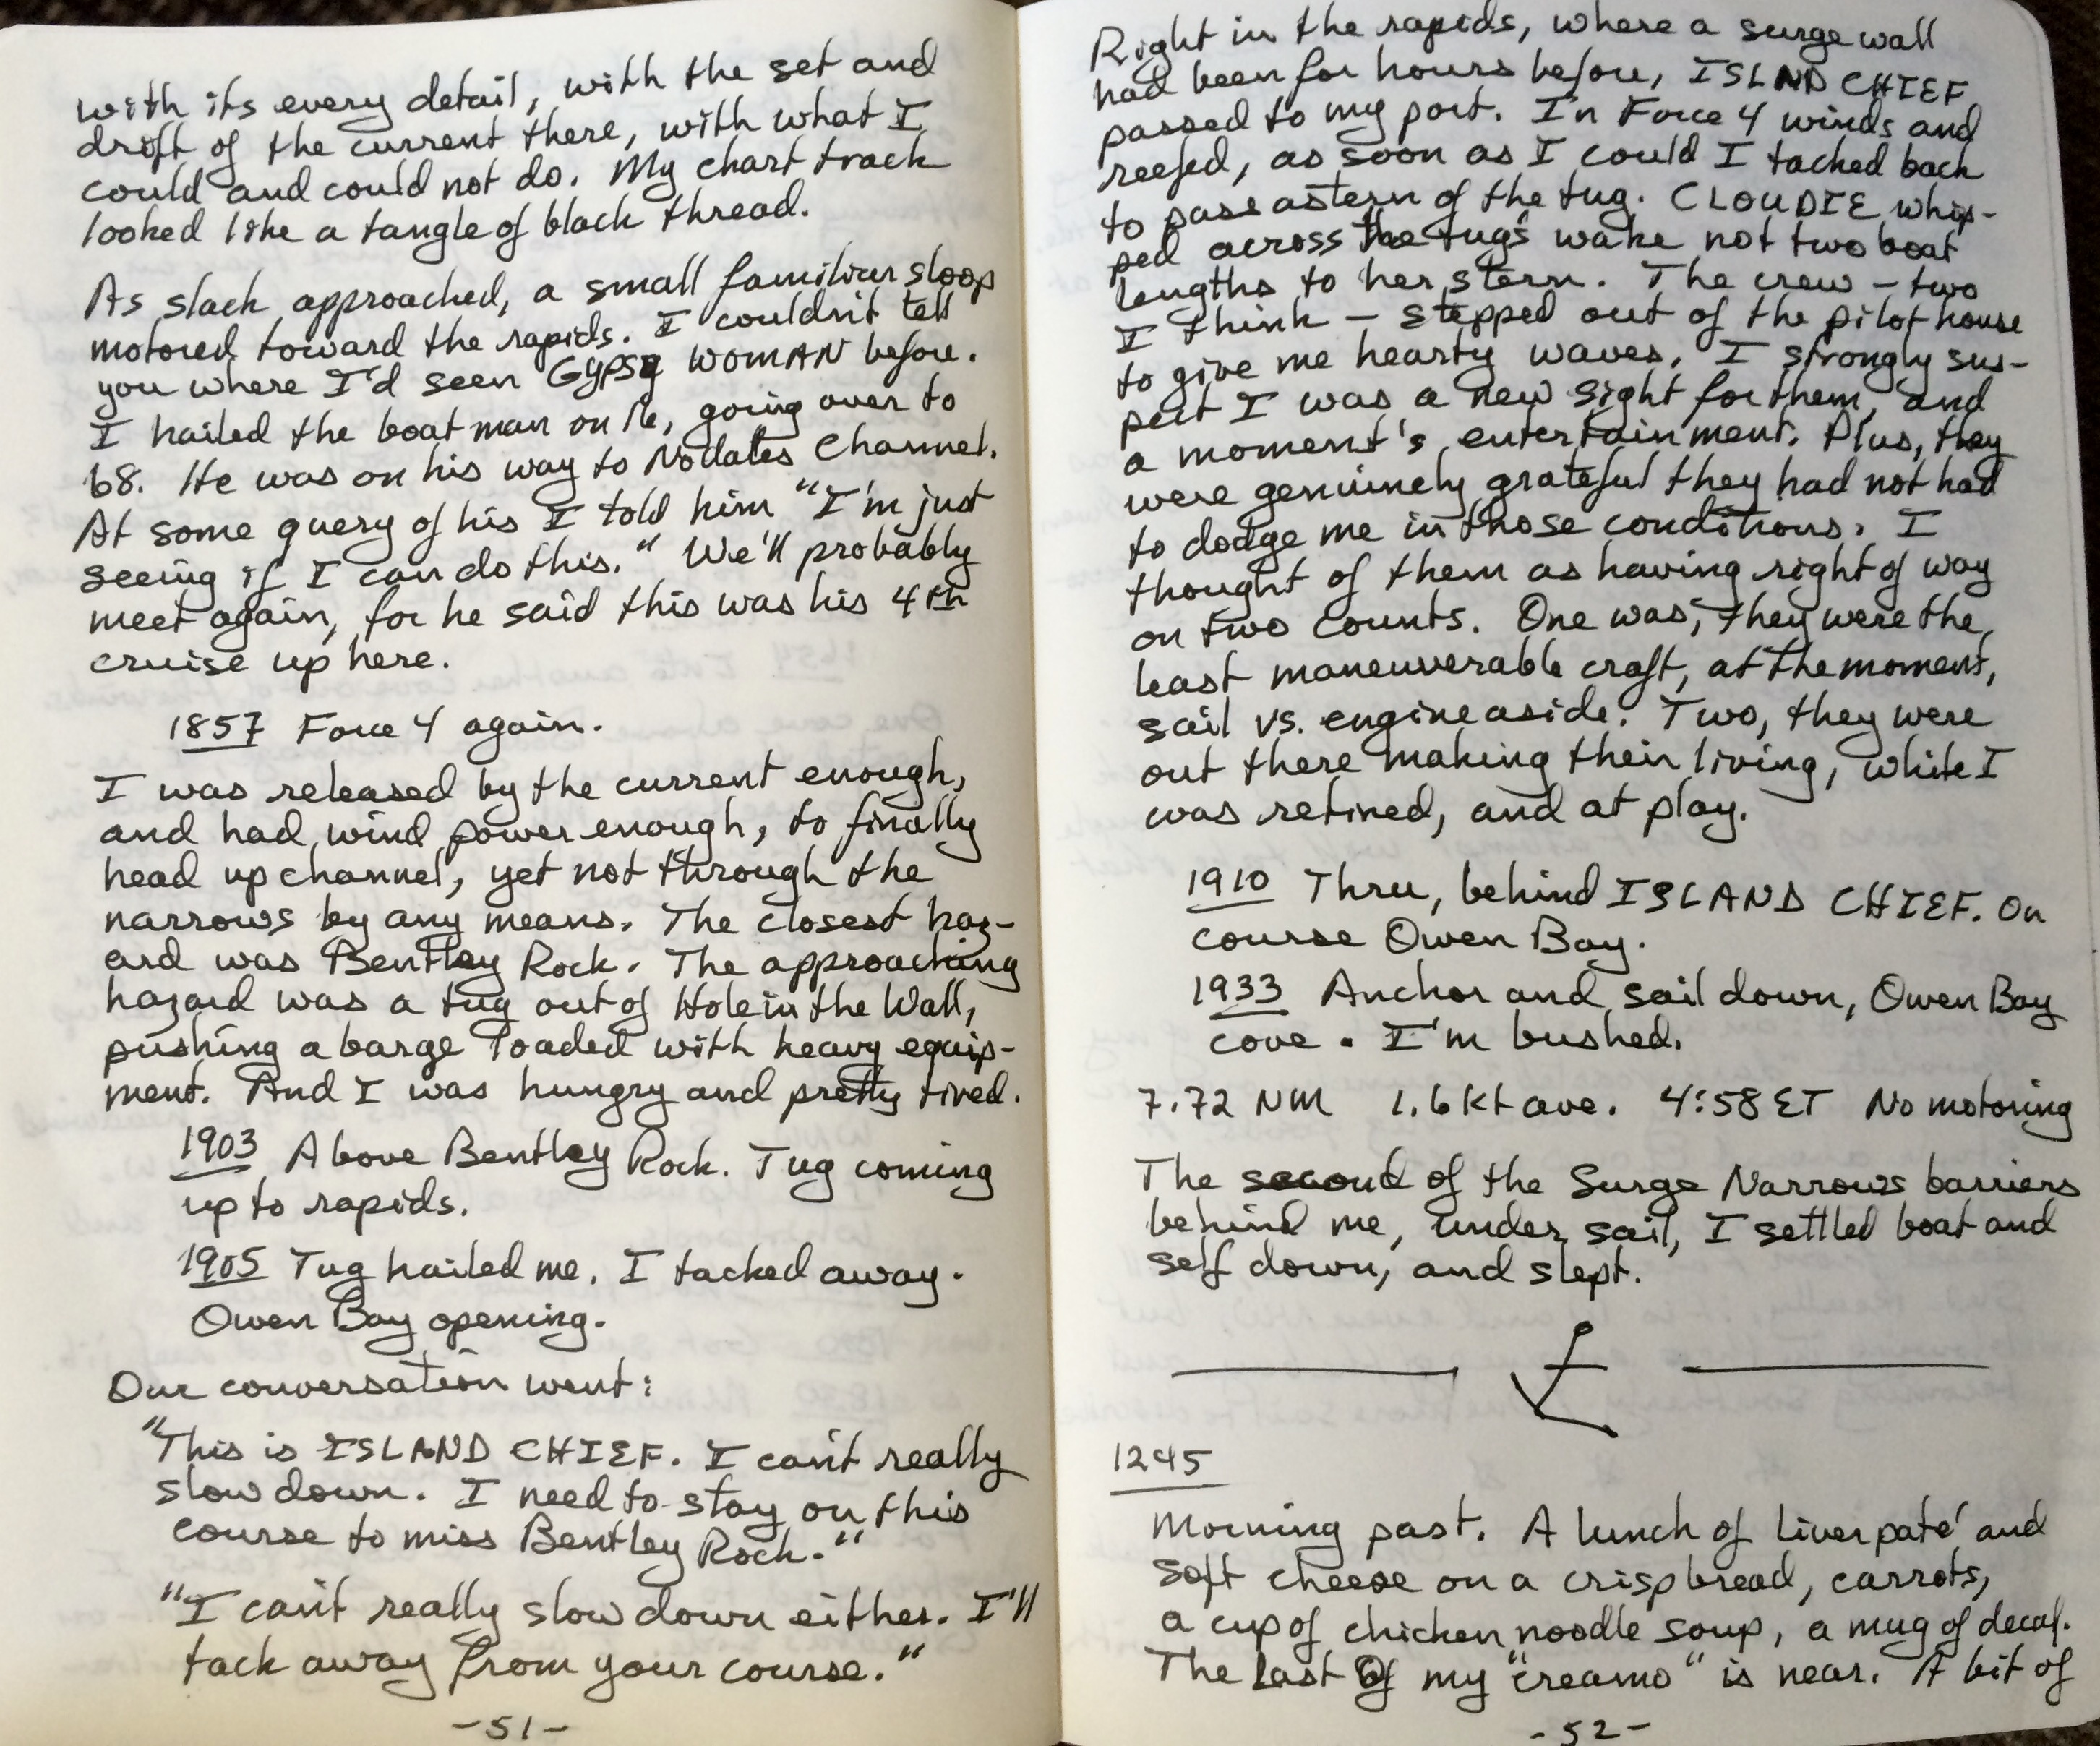 with its every detail, with the set and
drift of the current there, with what I
could and could not do. My chart track
looked like a tangle of black thread.
As slack approached, a small familiar sloop
motored toward the rapids. I couldn't tell
you where I'd seen GYPSY WOMAN before.
I hailed the boat man on 16, going over to
68. He was on his way to Nodales Channel.
At some query of his I told him "I'm just
seeing if I can do this." We'll probably
meet again, for he said this was his 4th
cruise up here.
1857 Force 4 again.
I was released by the current enough,
and had wind power enough, to finally
head up channel, yet not through the
narrows by any means. The closest haz-
ard was Bentley Rock. The approaching
hazard was a tug out of Hole in the Wall,
pushing a barge loaded with heavy equip-
ment. And I was hungry and pretty tired.
1903 Above Bentley Rock. Tug coming
up to rapids.
1905 Tug hailed me. I tacked away.
Owen Bay opening.
Our conversation went:
"This is ISLAND CHIEF. I can't really
slow down. I need to stay on this
course to miss Bentley Rock."
"I can't really slow down either. I'll
tack away from your course."
-51-
Right in the rapids, where a surge wall
had been for hours before, ISLND CHIEF
passed to my port. In Force 4 winds and
reefed, as soon as I could I tacked back
to pass astern of the tug. CLOUDIE whip-
ped across the tug's wake not two boat
lengths to her stern. The crew - two
I think - stepped out of the pilot house
to give me hearty waves. I strongly sus-
pect I was a new sight for them, and
a moment's entertainment. Plus, they
were genuinely grateful they had not had
to dodge me in those conditions. I
thought of them as having right of way
on two counts. One was, they were the
least maneuverable craft, at the moment,
sail vs. engine aside. Two, they were
out there making their living, while I
was retired, and at play.
1910 Thru, behind ISLAND CHIEF. On
course Owen Bay.
1933 Anchor and sail down, Owen Bay
cove. I'm bushed.
7.72 NM 1.6 kt ave. 4:58 ET No motoring
The second of the Surge Narrows barriers
behind me, under sail, I settled boat and
self down, and slept.
1245
Morning past. A lunch of liver paté and
soft cheese on a crispbread, carrots,
a cup of chicken noodle soup, a mug of decaf.
The last of my "creamo" is near. A bit of
-52-